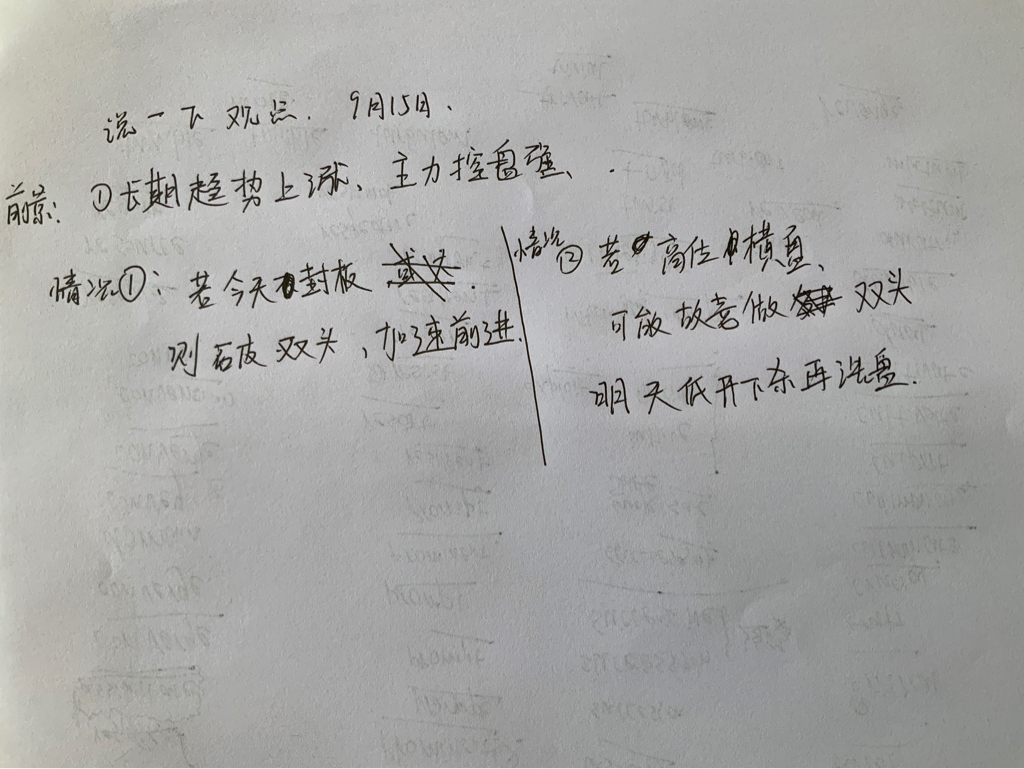 说一下观点. 9月15日.
前景: ①长期趋势上涨、主力控盘强、.
情况①: 若今天封板.
则破双头, 加速前进.
情况② 若高位横盘、
可能故意做双头
明天低开下杀再洗盘.